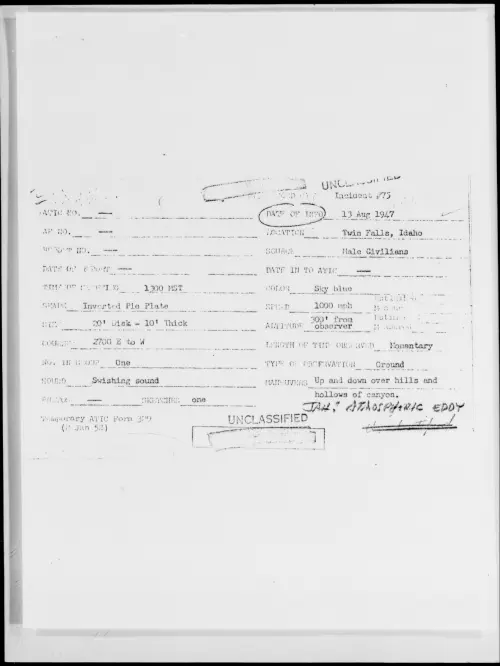 UNCLASSIFIED
Incident #75
ATIC NO. — DATE OF INFO 13 Aug 1947
AF NO. — LOCATION Twin Falls, Idaho
REPORT NO. — SOURCE Male Civilians
DATE OF REPORT — DATE IN TO ATIC —
TIME OF SIGHTING 1300 MST COLOR Sky blue
SHAPE Inverted Pie Plate SPEED 1000 mph
SIZE 20' Disk - 10' Thick ALTITUDE 300' from observer
COURSE 2700 E to W LENGTH OF TIME OBSERVED Momentary
NO. IN GROUP One TYPE OF OBSERVATION Ground
SOUND Swishing sound MANEUVERS Up and down over hills and
hollows of canyon.
PHOTOS — SKETCHES one
JAH: ATMOSPHERIC EDDY
Temporary ATIC Form 329
(2 Jan 52)
UNCLASSIFIED